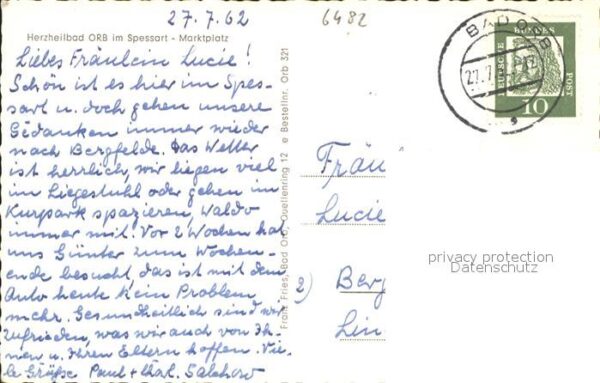 27.7.62
6482
Herzheilbad ORB im Spessart - Marktplatz
Liebes Fräulein Lucie!
Schön ist es hier im Spes-
sart u. doch gehen unsere
Gedanken immer wieder
nach Bergfelde. Das Wetter
ist herrlich, wir liegen viel
im Liegestuhl oder gehen im
Kurpark spazieren, Waldo
immer mit. Vor 2 Wochen hat
uns Günter zum Wochen-
ende besucht, das ist mit dem
Auto heute kein Problem
mehr. Gesundheitlich sind wir
zufrieden, was wir auch von Ih-
nen u. Ihren Eltern hoffen. Vie-
le Grüße Paul + Salchow
Franz Fries, Bad Orb, Quellenring 12 e Bestellnr. Orb 321
BAD ORB
27.7.
DEUTSCHE BUNDES POST
10
Fräu
Lucie
2) Berg
Lin
privacy protection
Datenschutz